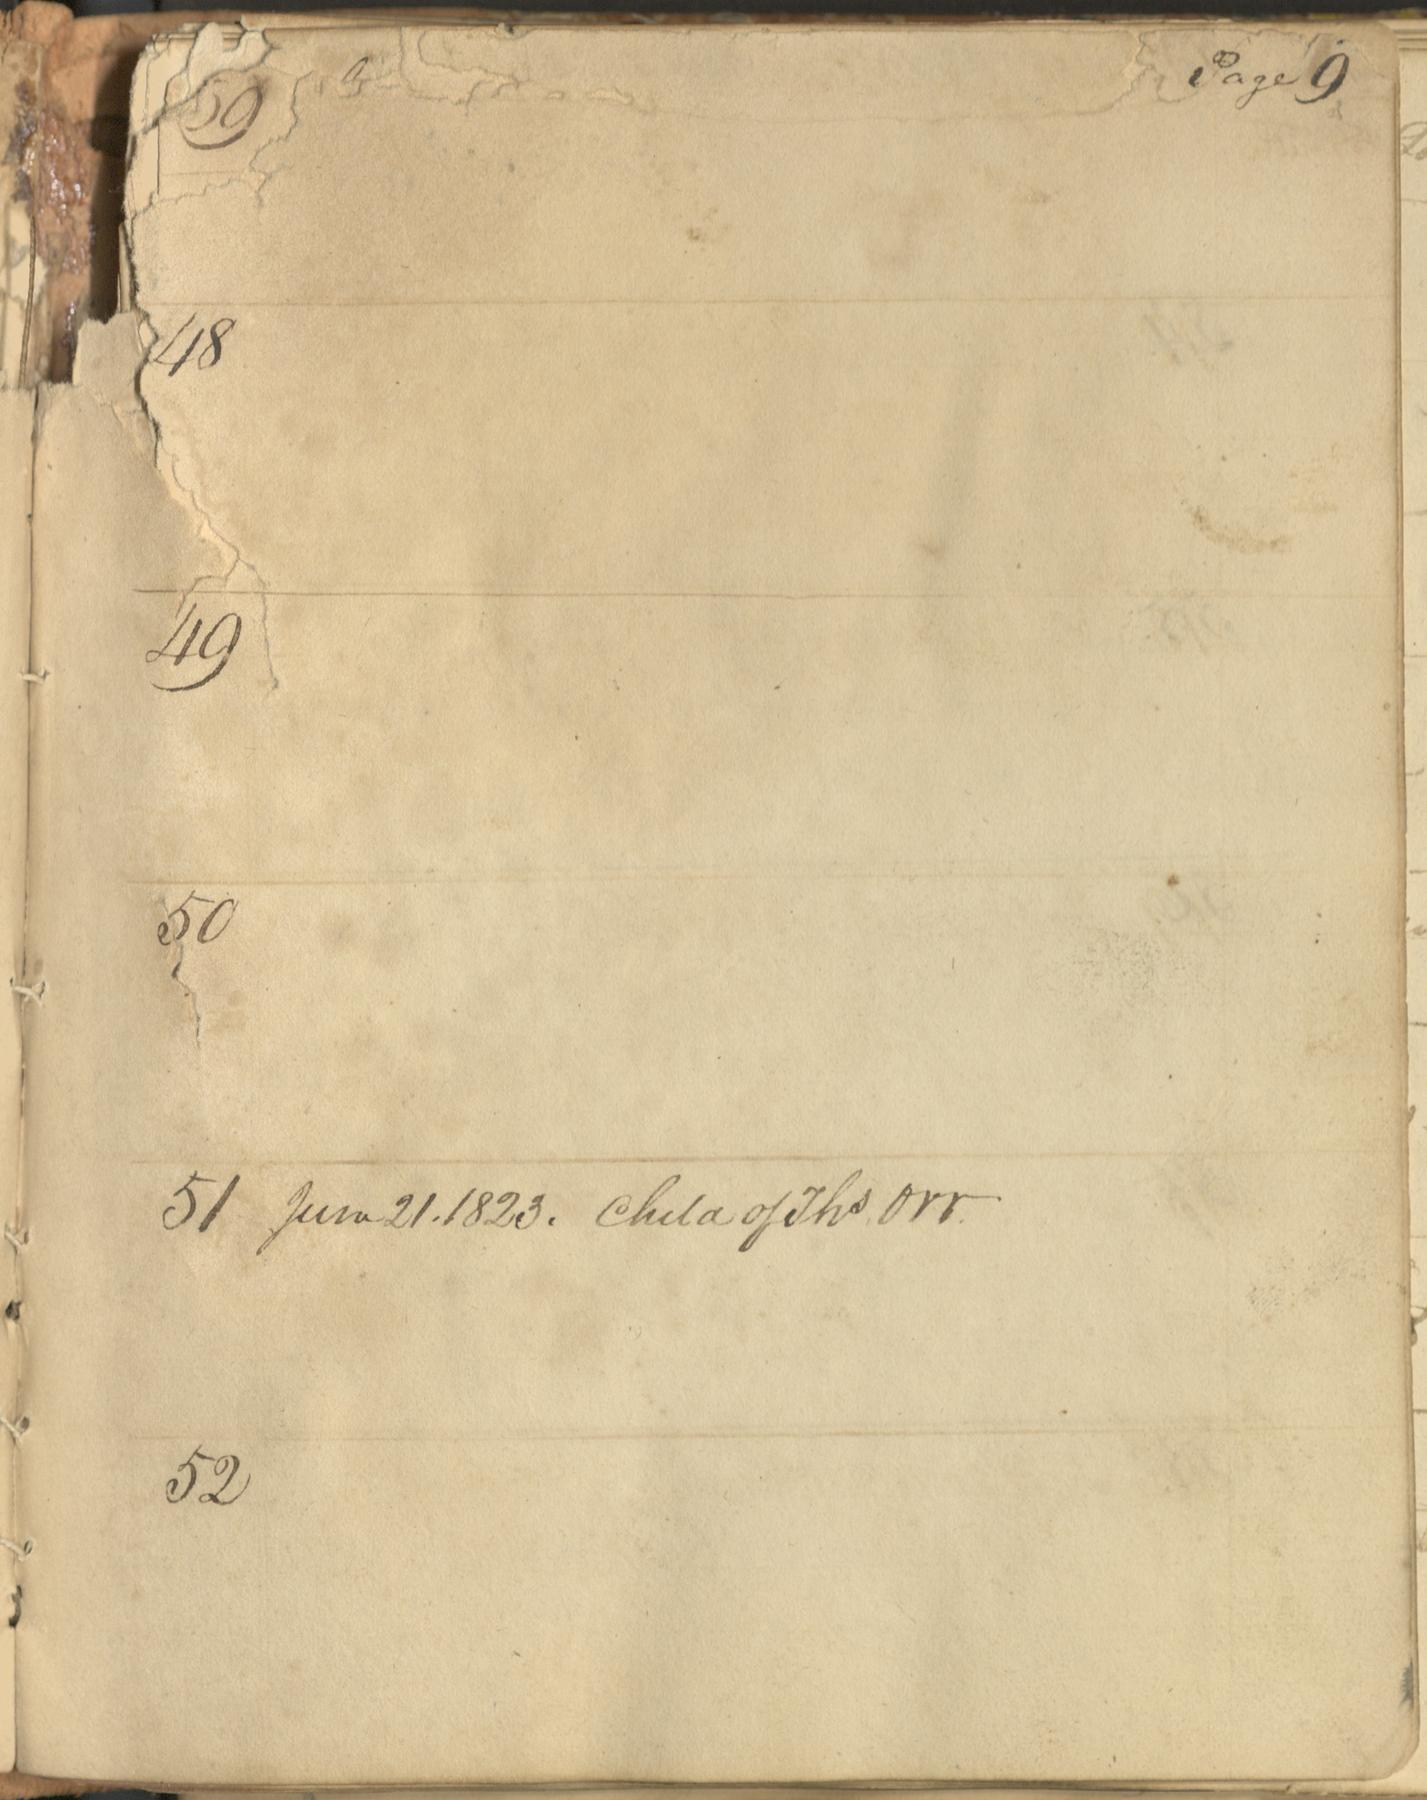 Page 9
59
48
49
50
51 June 21. 1823. Child of Ths. Orr.
52